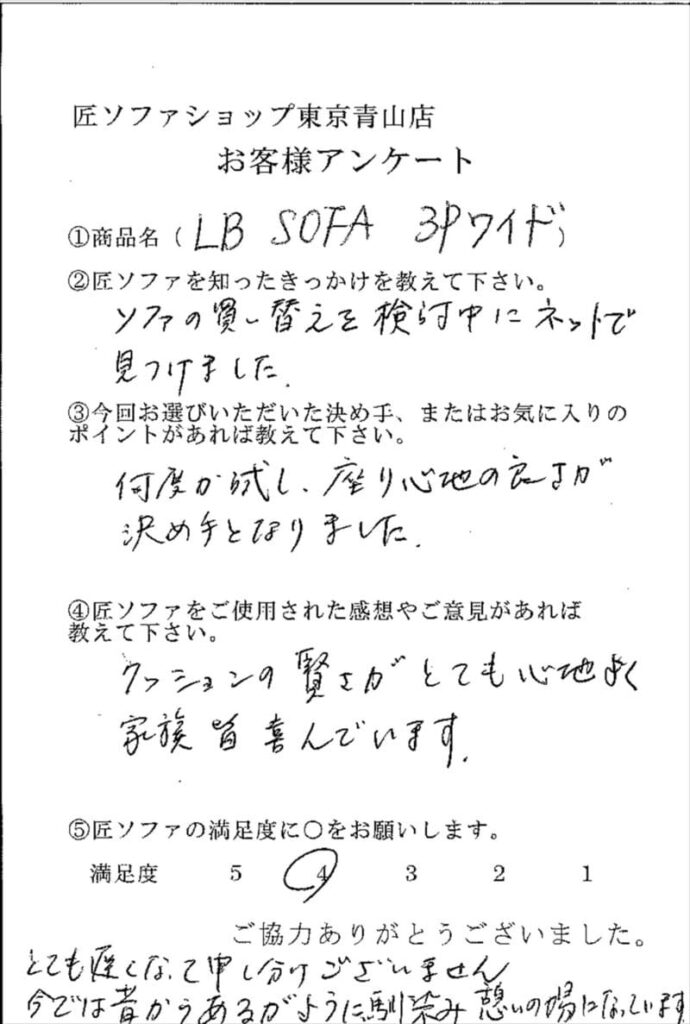 匠ソファショップ東京青山店
お客様アンケート
①商品名（LB SOFA 3Pワイド）
②匠ソファを知ったきっかけを教えて下さい。
ソファの買い替えを検討中にネットで
見つけました.
③今回お選びいただいた決め手、またはお気に入りの
ポイントがあれば教えて下さい。
何度か試し、座り心地の良さが
決め手となりました.
④匠ソファをご使用された感想やご意見があれば
教えて下さい。
クッションの賢さがとても心地よく
家族皆喜んでいます.
⑤匠ソファの満足度に〇をお願いします。
満足度 5 4 3 2 1
ご協力ありがとうございました。
とても遅くなって申し分けございません
今では昔からあるがように馴染み憩いの場になっています